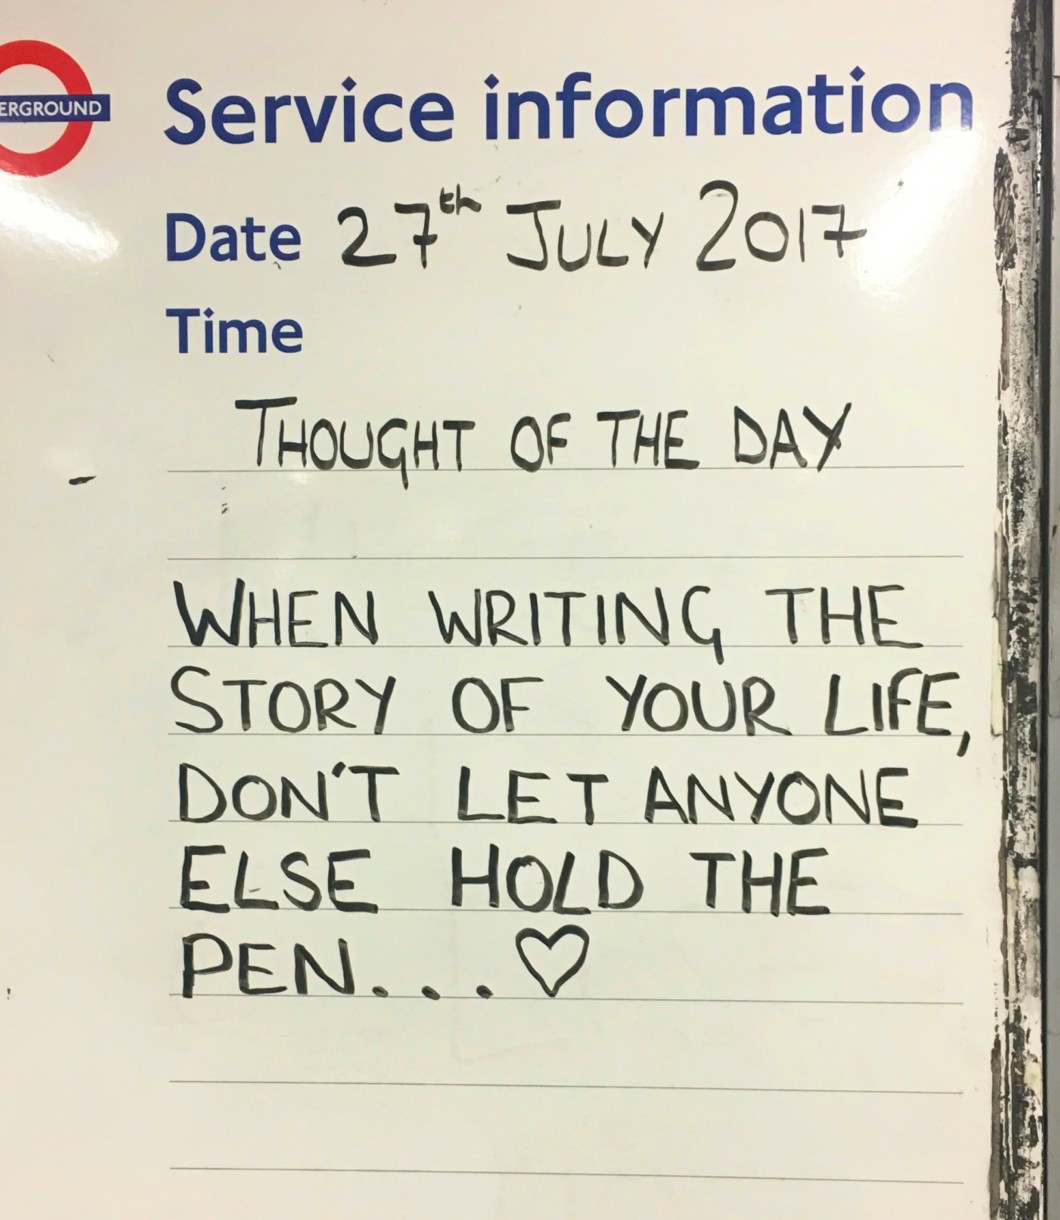 ERGROUND
Service information
Date 27th JULY 2017
Time
THOUGHT OF THE DAY
WHEN WRITING THE
STORY OF YOUR LIFE,
DON'T LET ANYONE
ELSE HOLD THE
PEN...♡